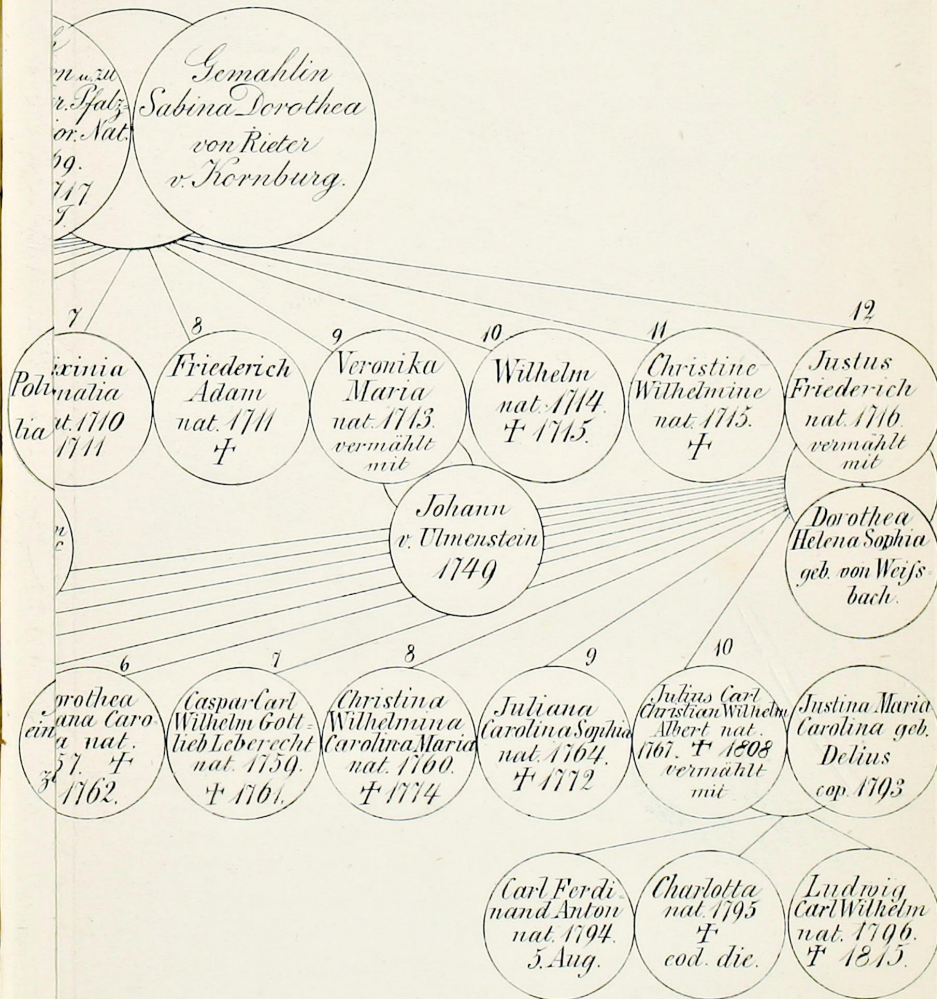 n u. zu
r. Pfalz-
or. Nat.
69.
717
Gemahlin
Sabina Dorothea
von Rieter
v. Kornburg.
7
ixinia
Poly malia
lia at. 1710
1711
8
Friederich
Adam
nat. 1711
✝
9
Veronika
Maria
nat. 1713.
vermählt
mit
Johann
v. Ulmenstein
1749
10
Wilhelm
nat. 1714.
✝ 1715.
11
Christine
Wilhelmine
nat. 1715.
✝
12
Justus
Friederich
nat. 1716.
vermählt
mit
Dorothea
Helena Sophia
geb. von Weiſs
bach.
6
orothea
ana Caro-
ein a nat.
57. ✝
1762.
7
Caspar Carl
Wilhelm Gott=
lieb Leberecht
nat. 1759.
✝ 1761.
8
Christina
Wilhelmina
Carolina Maria
nat. 1760.
✝ 1774
9
Juliana
Carolina Sophia
nat. 1764.
✝ 1772
10
Julius Carl
Christian Wilhelm
Albert nat.
1767. ✝ 1808
vermählt
mit
Justina Maria
Carolina geb.
Delius
cop. 1793
Carl Ferdi-
nand Anton
nat. 1794.
5. Aug.
Charlotta
nat. 1795
✝
eod. die.
Ludwig
Carl Wilhelm
nat. 1796.
✝ 1815.